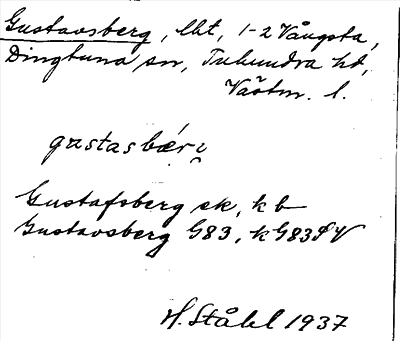 Gustavsberg, lht, 1-2 Vångsta,
Dingtuna sn, Tuhundra hd,
Västm. l.
gustasbær̨
Gustafsberg ek, k b
Gustavsberg G83, k G83
H. Ståhl 1937